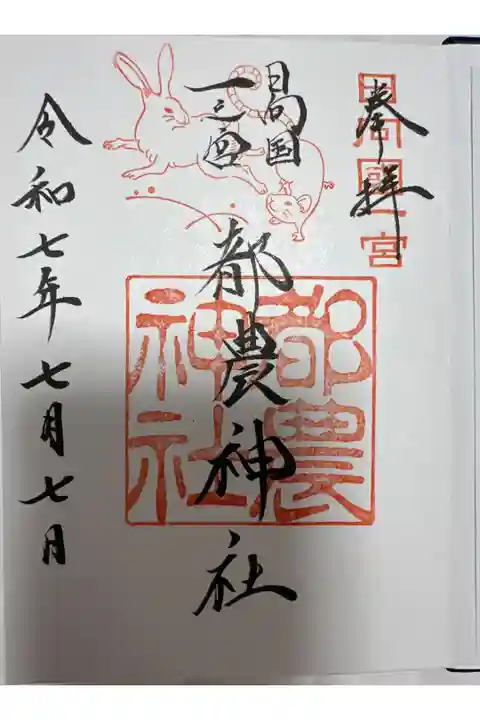 奉拝
日向國一宮
日向国
一之宮
都農神社
都農神社
令和七年七月七日